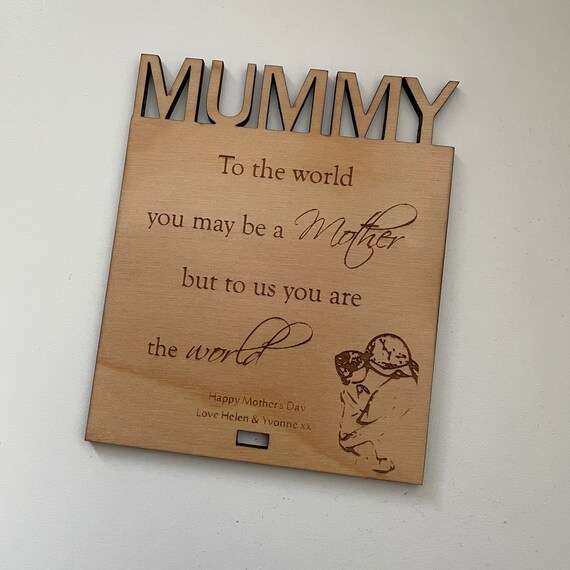 MUMMY
To the world
you may be a Mother
but to us you are
the world
Happy Mothers Day
Love Helen & Yvonne xx